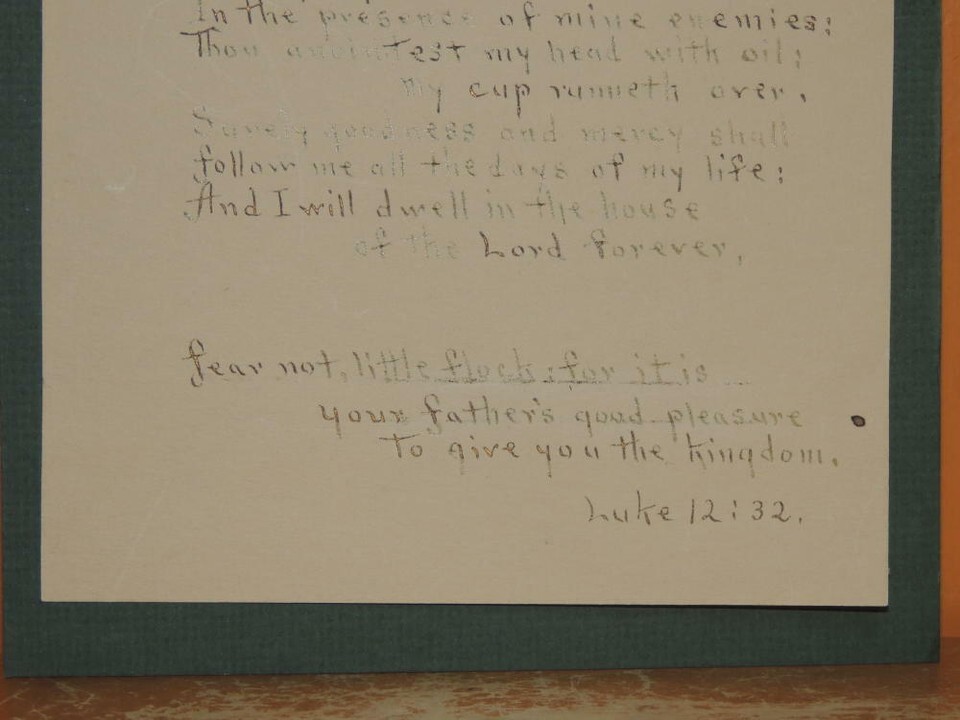 In the presence of mine enemies;
Thou anointest my head with oil;
My cup runneth over.
Surely goodness and mercy shall
follow me all the days of my life:
And I will dwell in the house
of the Lord forever,
Fear not, little flock: for it is
your father's good pleasure
To give you the kingdom.
Luke 12:32.